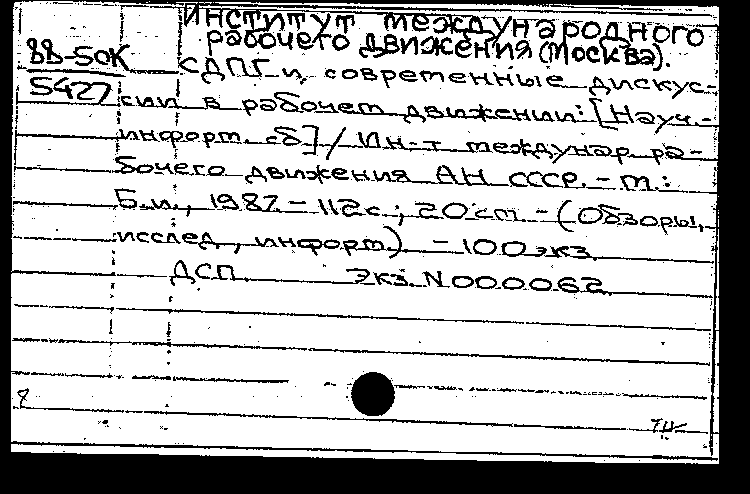 Институт международного
рабочего движения (Москва).
88-5ОК
5427
СДПГ и современные дискус-
сии в рабочем движении: [Науч.-
информ. сб] / Ин-т междунар ра-
бочего движения АН СССР. - М.:
Б.и., 1987. - 112с.; 20 см - (Обзоры,
исслед, информ) - 100 экз.
ДСП. Экз. N000062